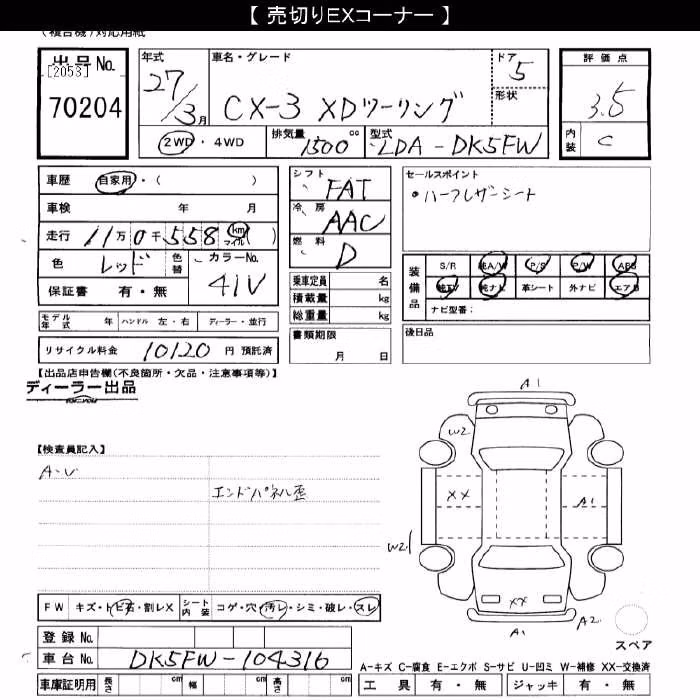 【 売切りEXコーナー 】
(複合機)対応用紙
出品No.
[2053]
70204
年式
27/3月
車名・グレード
CX-3 XDツーリング
ドア
5
形状
評価点
3.5
内装
C
2WD・4WD
排気量
1500cc
型式
LDA-DK5FW
車歴
自家用・( )
車検 年 月
走行 11万0千558 km マイル ( )
色 レッド 色替
カラーNo.
41V
保証書 有・無
シフト
FAT
冷房
AAC
燃料
D
乗車定員 名
積載量 kg
総重量 kg
セールスポイント
・ハーフレザーシート
装備品
S/R 純A/W P/S P/W ABS
純TV 純ナビ 革シート 外ナビ エアB
ナビ型番:
モデル年式 年 ハンドル 左・右 ディーラー・並行
リサイクル料金 10120 円 預託済
書類期限
月 日
後日品
【出品店申告欄(不良箇所・欠品・注意事項等)】
ディーラー出品
【検査員記入】
A・U
エンドパネル歪
A1
W2
XX
A1
W2
XX
A1
A2
スペア
FW キズ・トビ石・割レX シート内装 コゲ・穴・汚レ・シミ・破レ・スレ
登録No.
車台No. DK5FW-104316
車庫証明用 長さ cm 幅 cm 高さ cm
A-キズ C-腐食 E-エクボ S-サビ U-凹ミ W-補修 XX-交換済
工具 有・無 ジャッキ 有・無